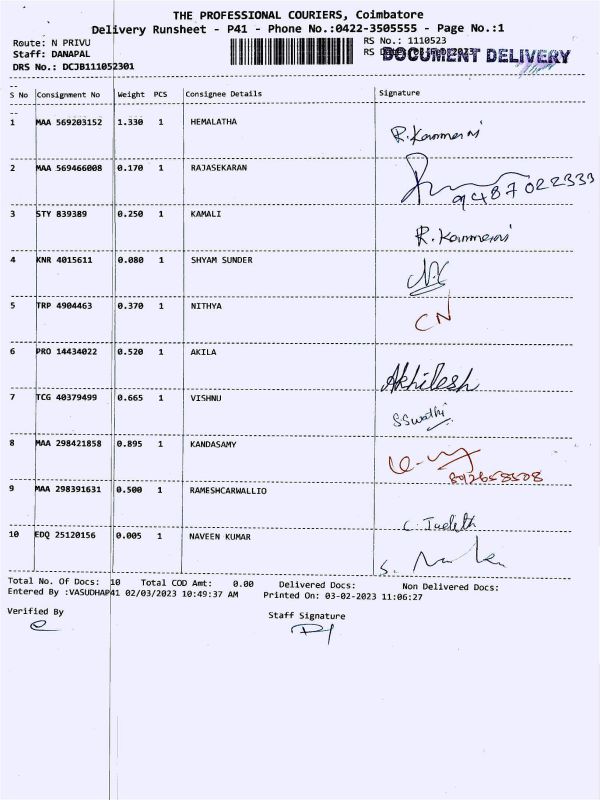 THE PROFESSIONAL COURIERS, Coimbatore
Delivery Runsheet - P41 - Phone No.:0422-3505555 - Page No.:1
Route: N PRIVU
RS No.: 1110523
Staff: DANAPAL
RS
DOCUMENT DELIVERY
DRS No.: DCJB111052301
S No Consignment No Weight PCS Consignee Details Signature
1 MAA 569203152 1.330 1 HEMALATHA
2 MAA 569466008 0.170 1 RAJASEKARAN 9487022333
3 STY 839389 0.250 1 KAMALI
4 KNR 4015611 0.080 1 SHYAM SUNDER
5 TRP 4904463 0.370 1 NITHYA CN
6 PRO 14434022 0.520 1 AKILA Akhilesh
7 TCG 40379499 0.665 1 VISHNU SSwathi
8 MAA 298421858 0.895 1 KANDASAMY
9 MAA 298391631 0.500 1 RAMESHCARWALLIO
10 EDQ 25120156 0.005 1 NAVEEN KUMAR
Total No. Of Docs: 10 Total COD Amt: 0.00 Delivered Docs: Non Delivered Docs:
Entered By :VASUDHAP41 02/03/2023 10:49:37 AM Printed On: 03-02-2023 11:06:27
Verified By Staff Signature